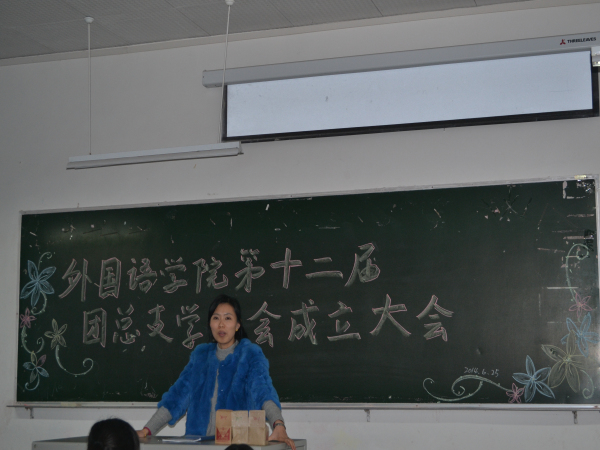 外国语学院第十二届
团总支学会成立大会
2014.6.25